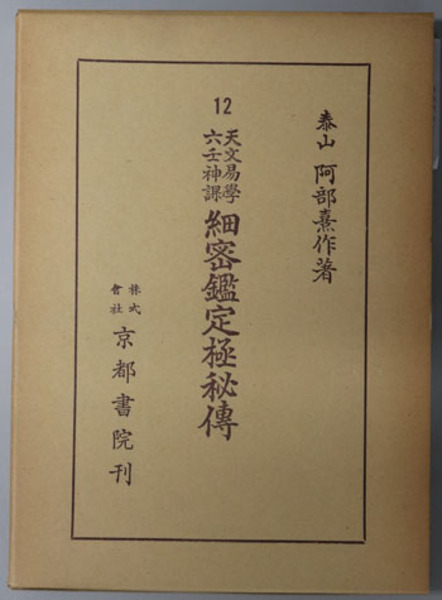 泰山 阿部熹作著
12
天文易學
六壬神課
細密鑑定極秘傳
株式
會社
京都書院刊